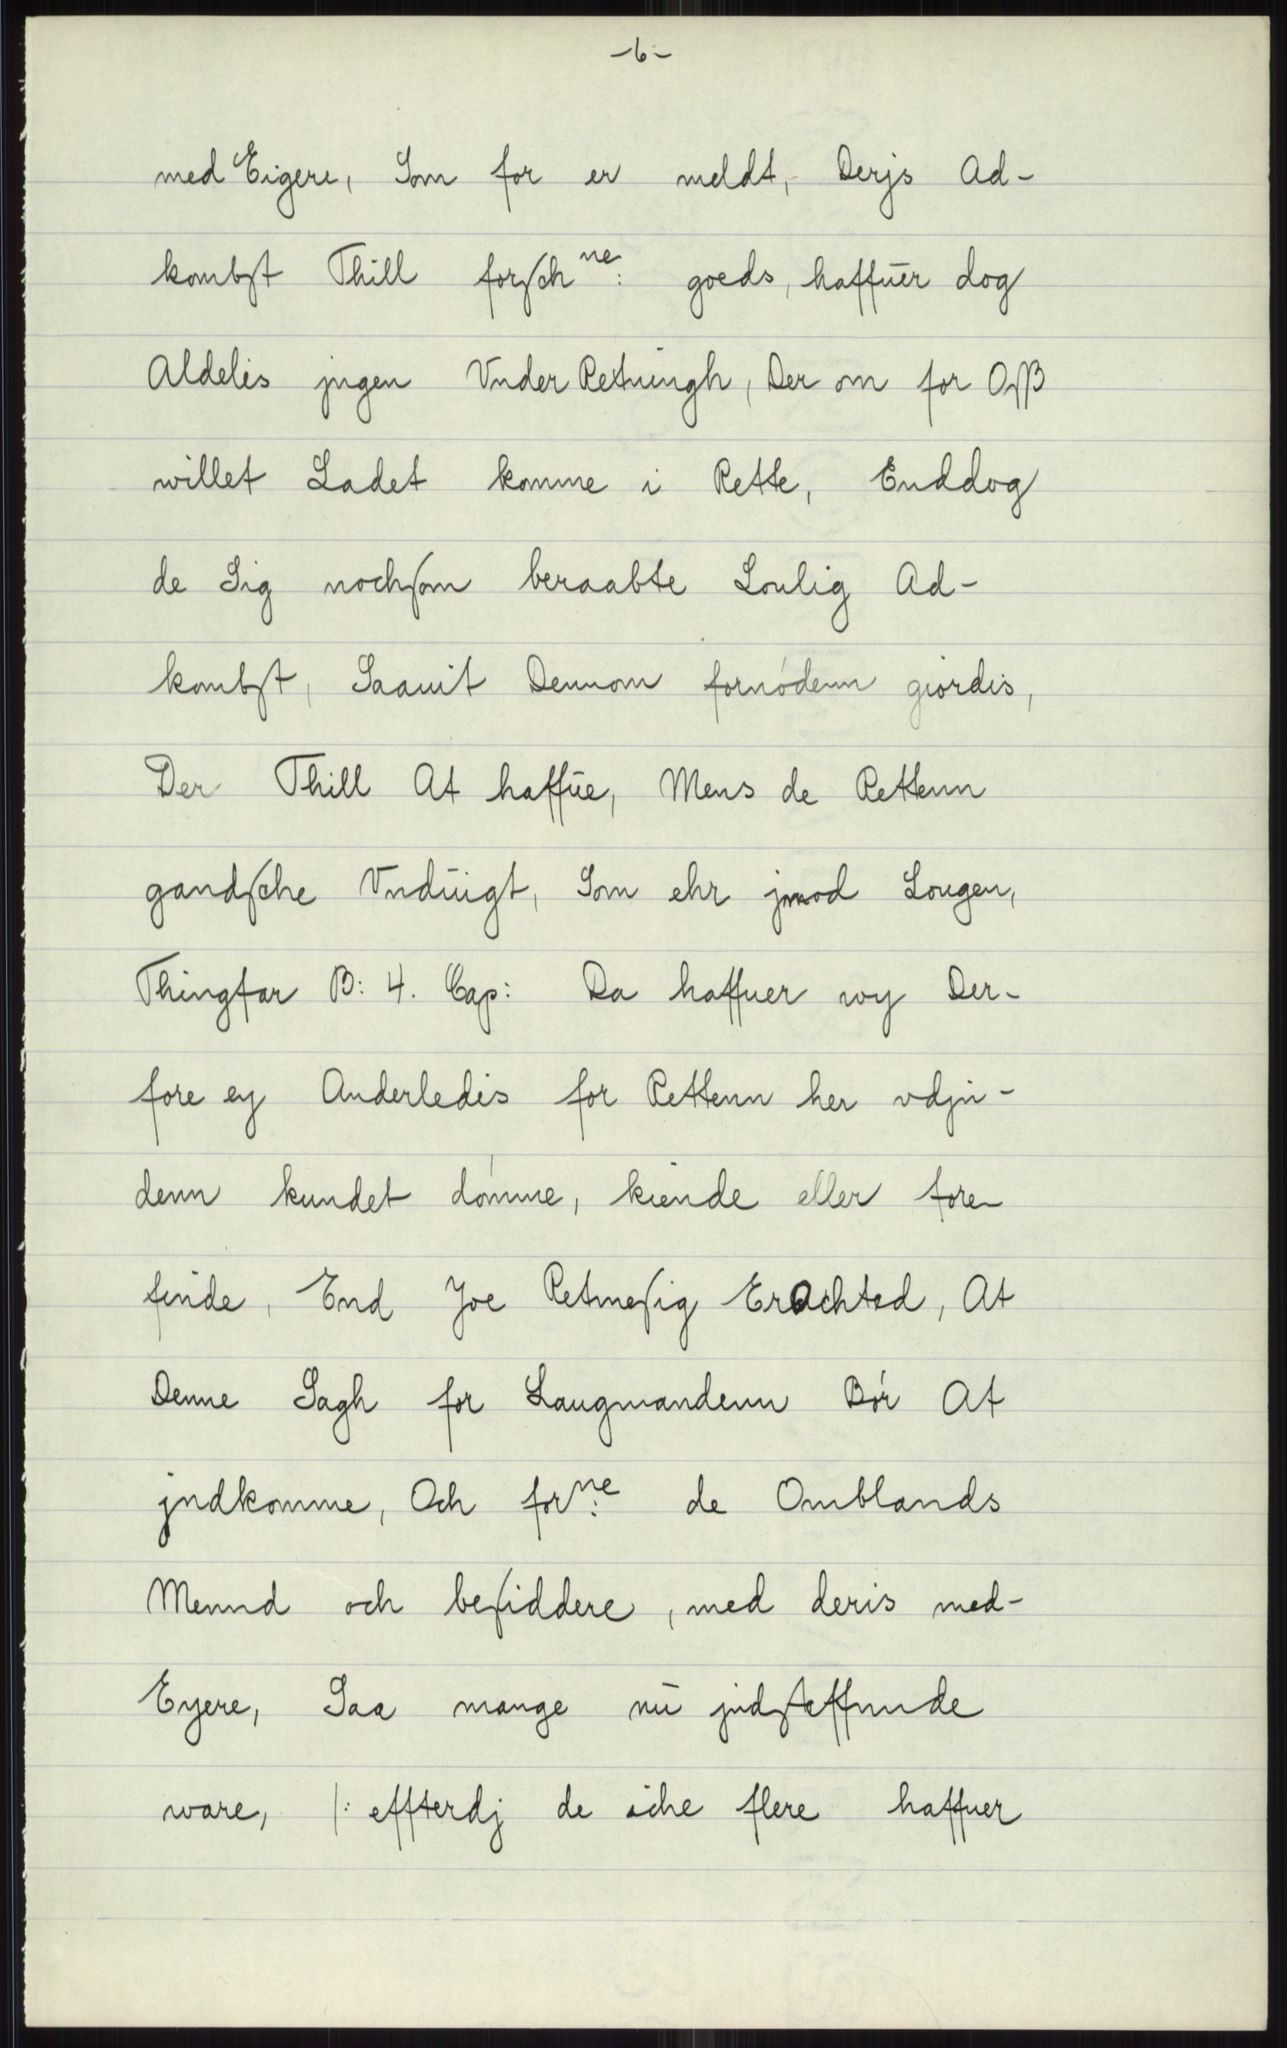 -6-
med Eigere, Som for er meldt, Derjs Ad-
kombst Thill forsch ne: goeds, haffuer dog
Aldelis jngen Vnder Retningh, Der om for Oss
willet Ladet komme i Rette, Enddog
de Sig nochsom beraabte Loulig Ad-
kombst, Saauit Dennom fornódenn giordis,
Der Thill At haffūe, Mens de Rettenn
gandsche Vnduigt, Som ehr jmod Lougen,
Thingfar B: 4. Cap: Da haffuer wy Der-
fore ey Anderledis for Rettenn her vdjn-
denn kundet dómme, kiende eller fore-
finde, End Joe Retmesig Erachted, At
Denne Sagh for Laugmandenn Bór At
jndkomme, Och for ne: de Omblands
Mennd och besiddere, med deris med-
Eyere, Saa mange nū jndsteffnnde
ware, /: effterdj de iche flere haffuer